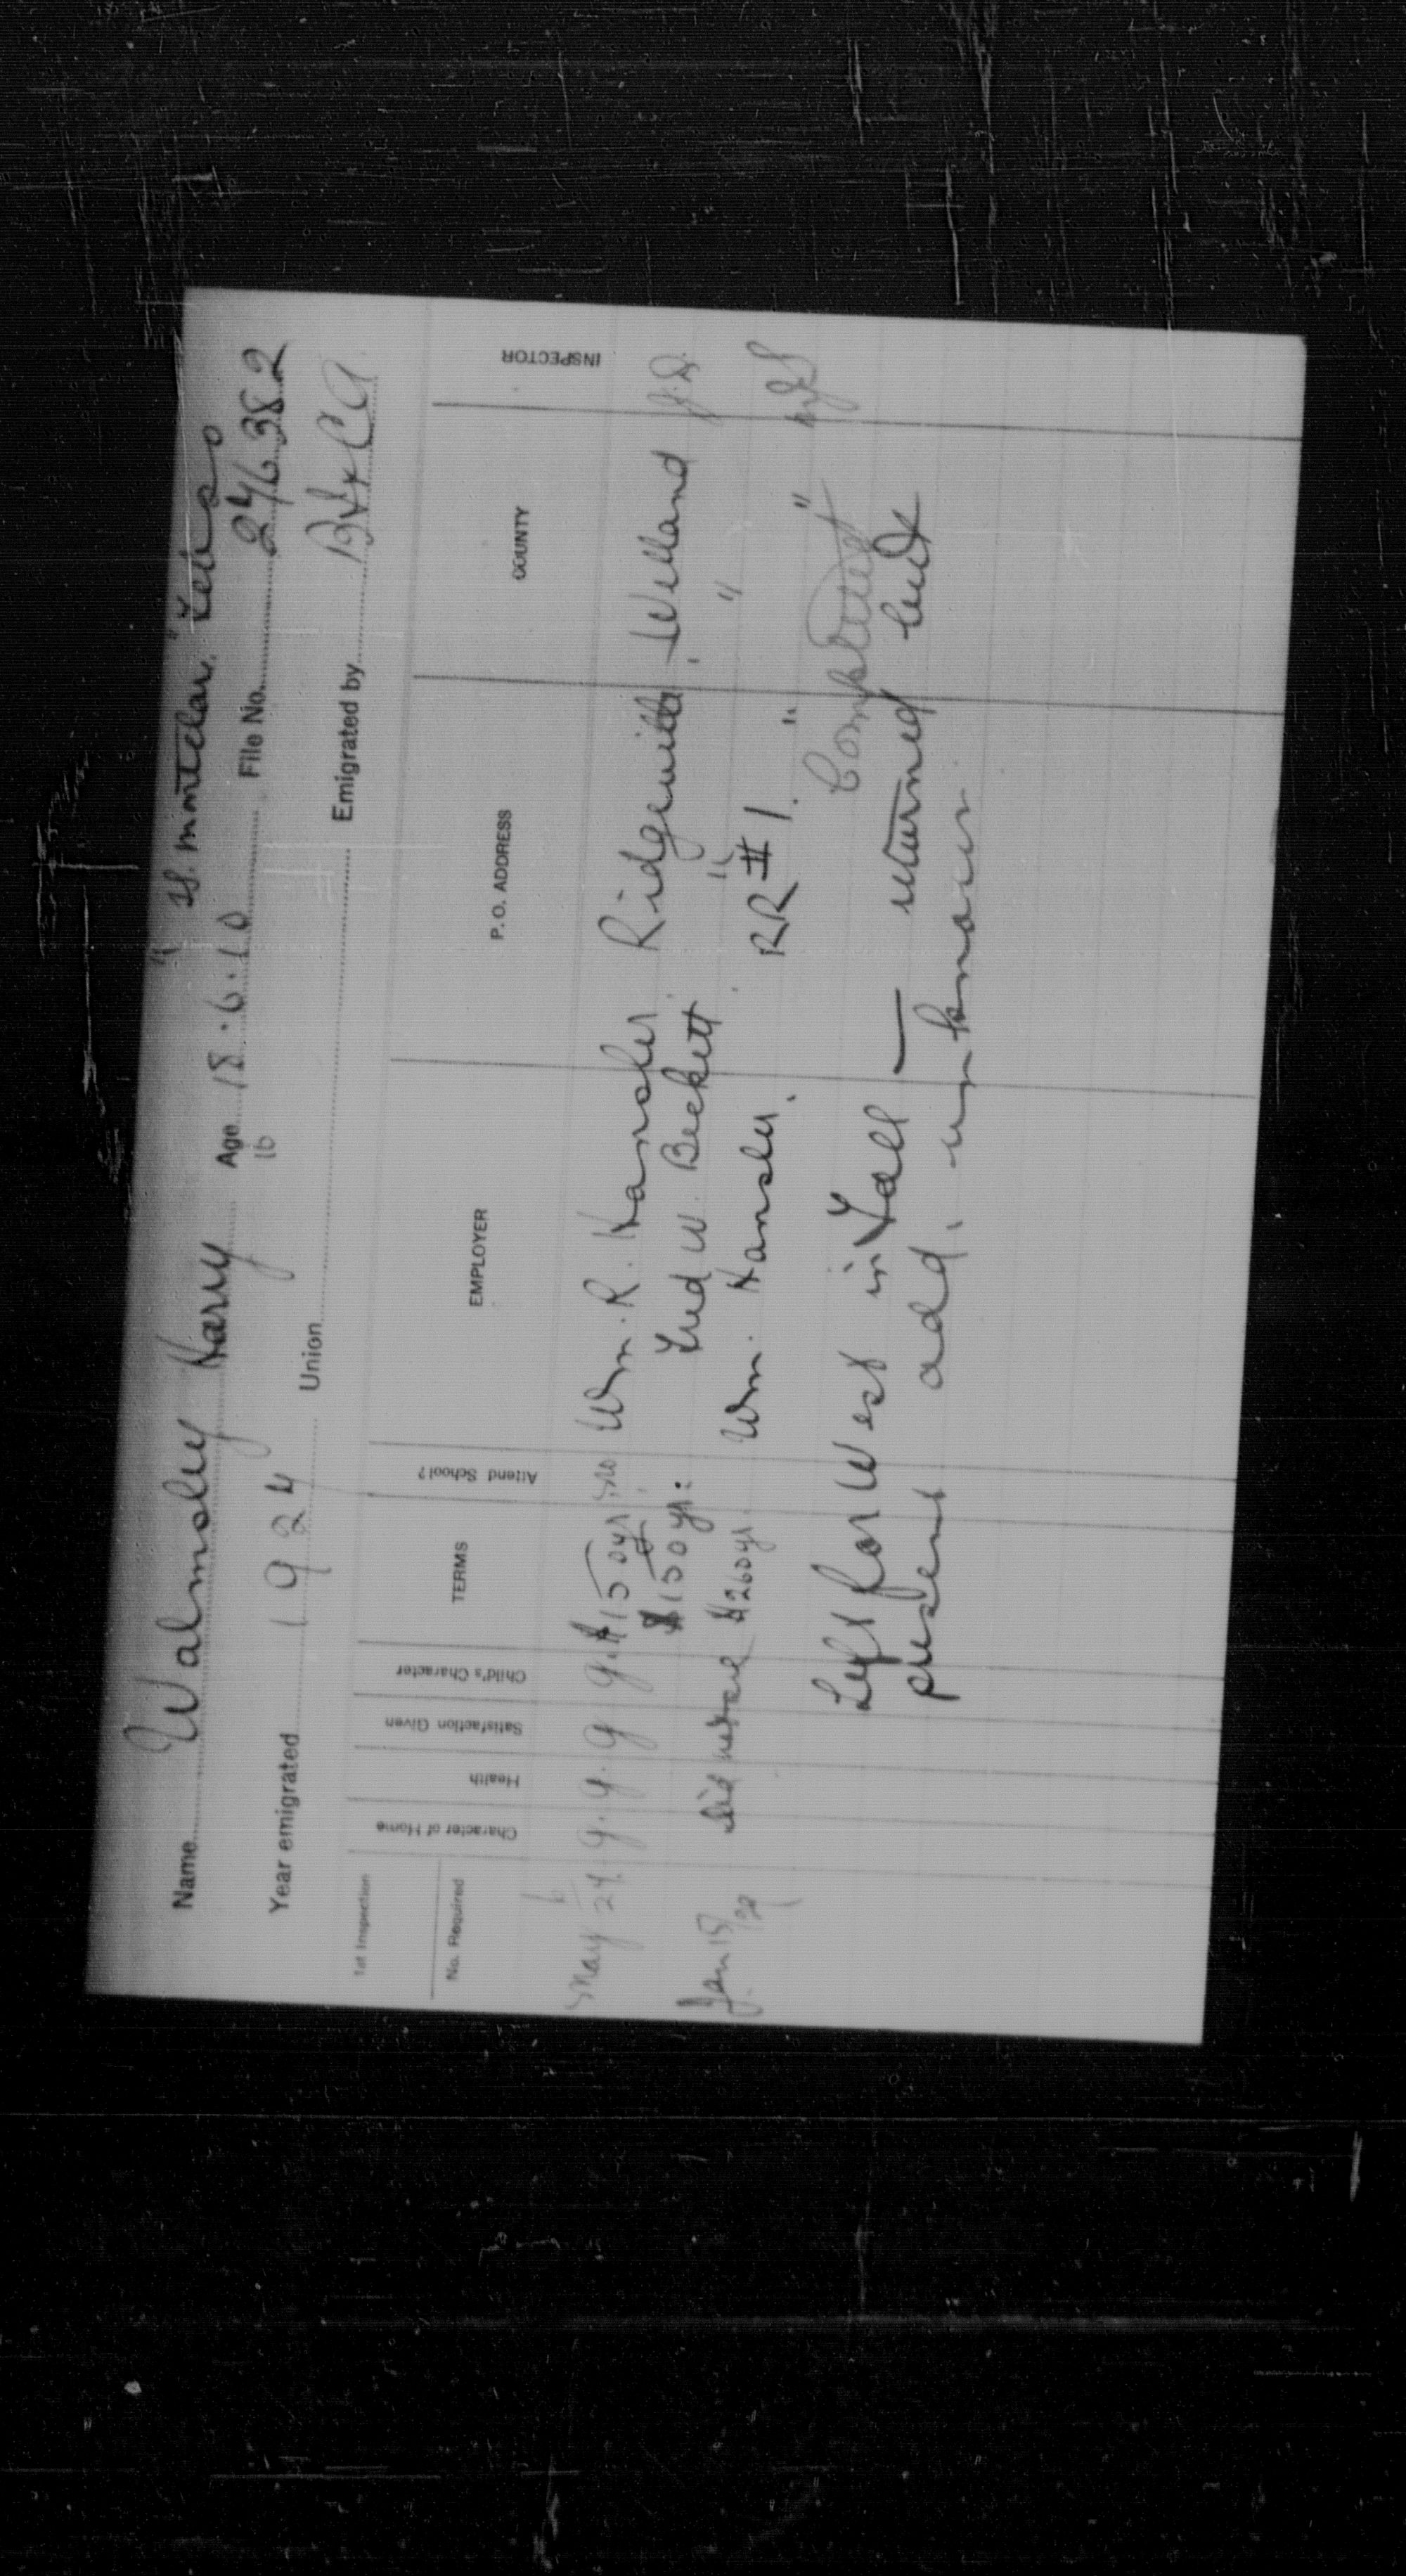 " S. Montclair" Feb 20
Name Walmsley Harry Age 18.6.10 File No. 246382
16
Year emigrated 1924 Union Emigrated by B&CA
1st Inspection
No. Required Character of Home Health Satisfaction Given Child's Character TERMS Attend School? EMPLOYER P. O. ADDRESS COUNTY INSPECTOR
May 6/24. g. g. g g. $150 yr no Wm. R. Hansler Ridgeville, Welland
$150 yr. Fred W. Beckett " "
Jan 15/29 Did not see $260 yr. Wm. Hansler. RR #1. " "
Completed
Left for West in Fall — returned but
present add. unknown